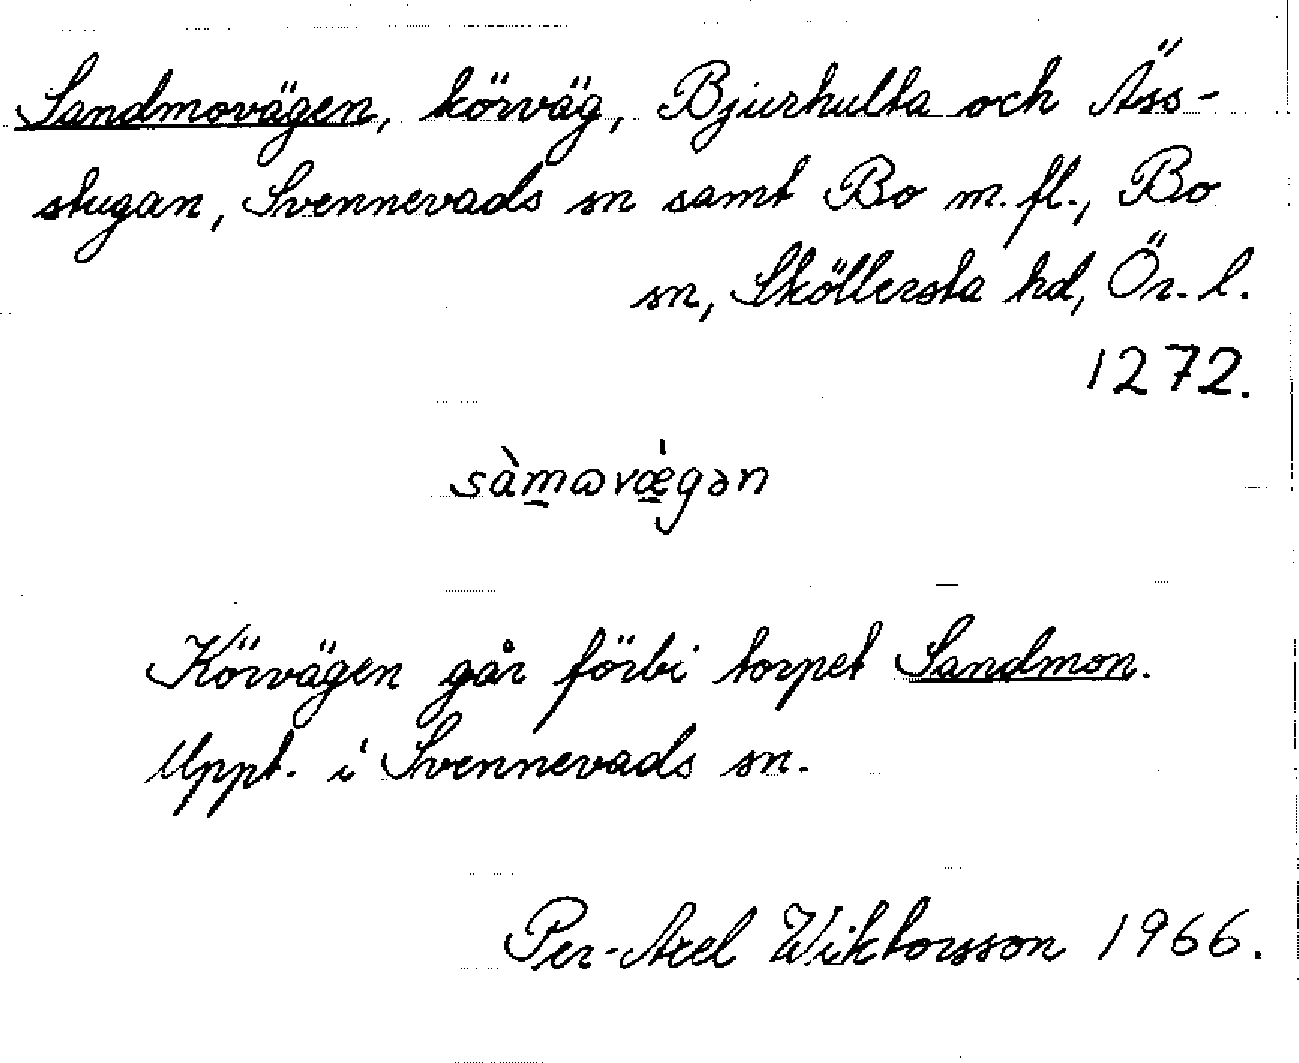 Sandmovägen, körväg, Bjurhulta och Äss-
stugan, Svennevads sn samt Bo m.fl., Bo
sn, Sköllersta hd, Ör. l.
1272.
sàmɷvǽgən
Körvägen går förbi torpet Sandmon.
Uppt. i Svennevads sn.
Per-Axel Wiktorsson 1966.